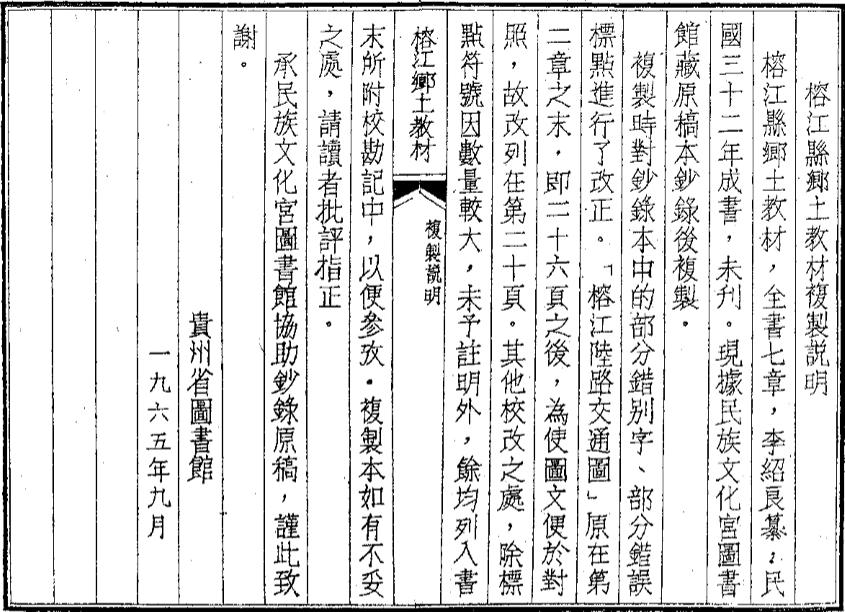 榕江縣鄉土教材複製説明
榕江縣鄉土教材，全書七章，李紹良纂；民
國三十二年成書，未刊。現據民族文化宮圖書
館藏原稿本鈔錄後複製。
複製時對鈔錄本中的部分錯別字、部分錯誤
標點進行了改正。「榕江陸路交通圖」原在第
二章之末，即二十六頁之後，為使圖文便於對
照，故改列在第二十頁。其他校改之處，除標
點符號因數量較大，未予註明外，餘均列入書
榕江鄉土教材
複製説明
末所附校勘記中，以便參攷。複製本如有不妥
之處，請讀者批評指正。
承民族文化宮圖書館協助鈔錄原稿，謹此致
謝。
貴州省圖書館
一九六五年九月